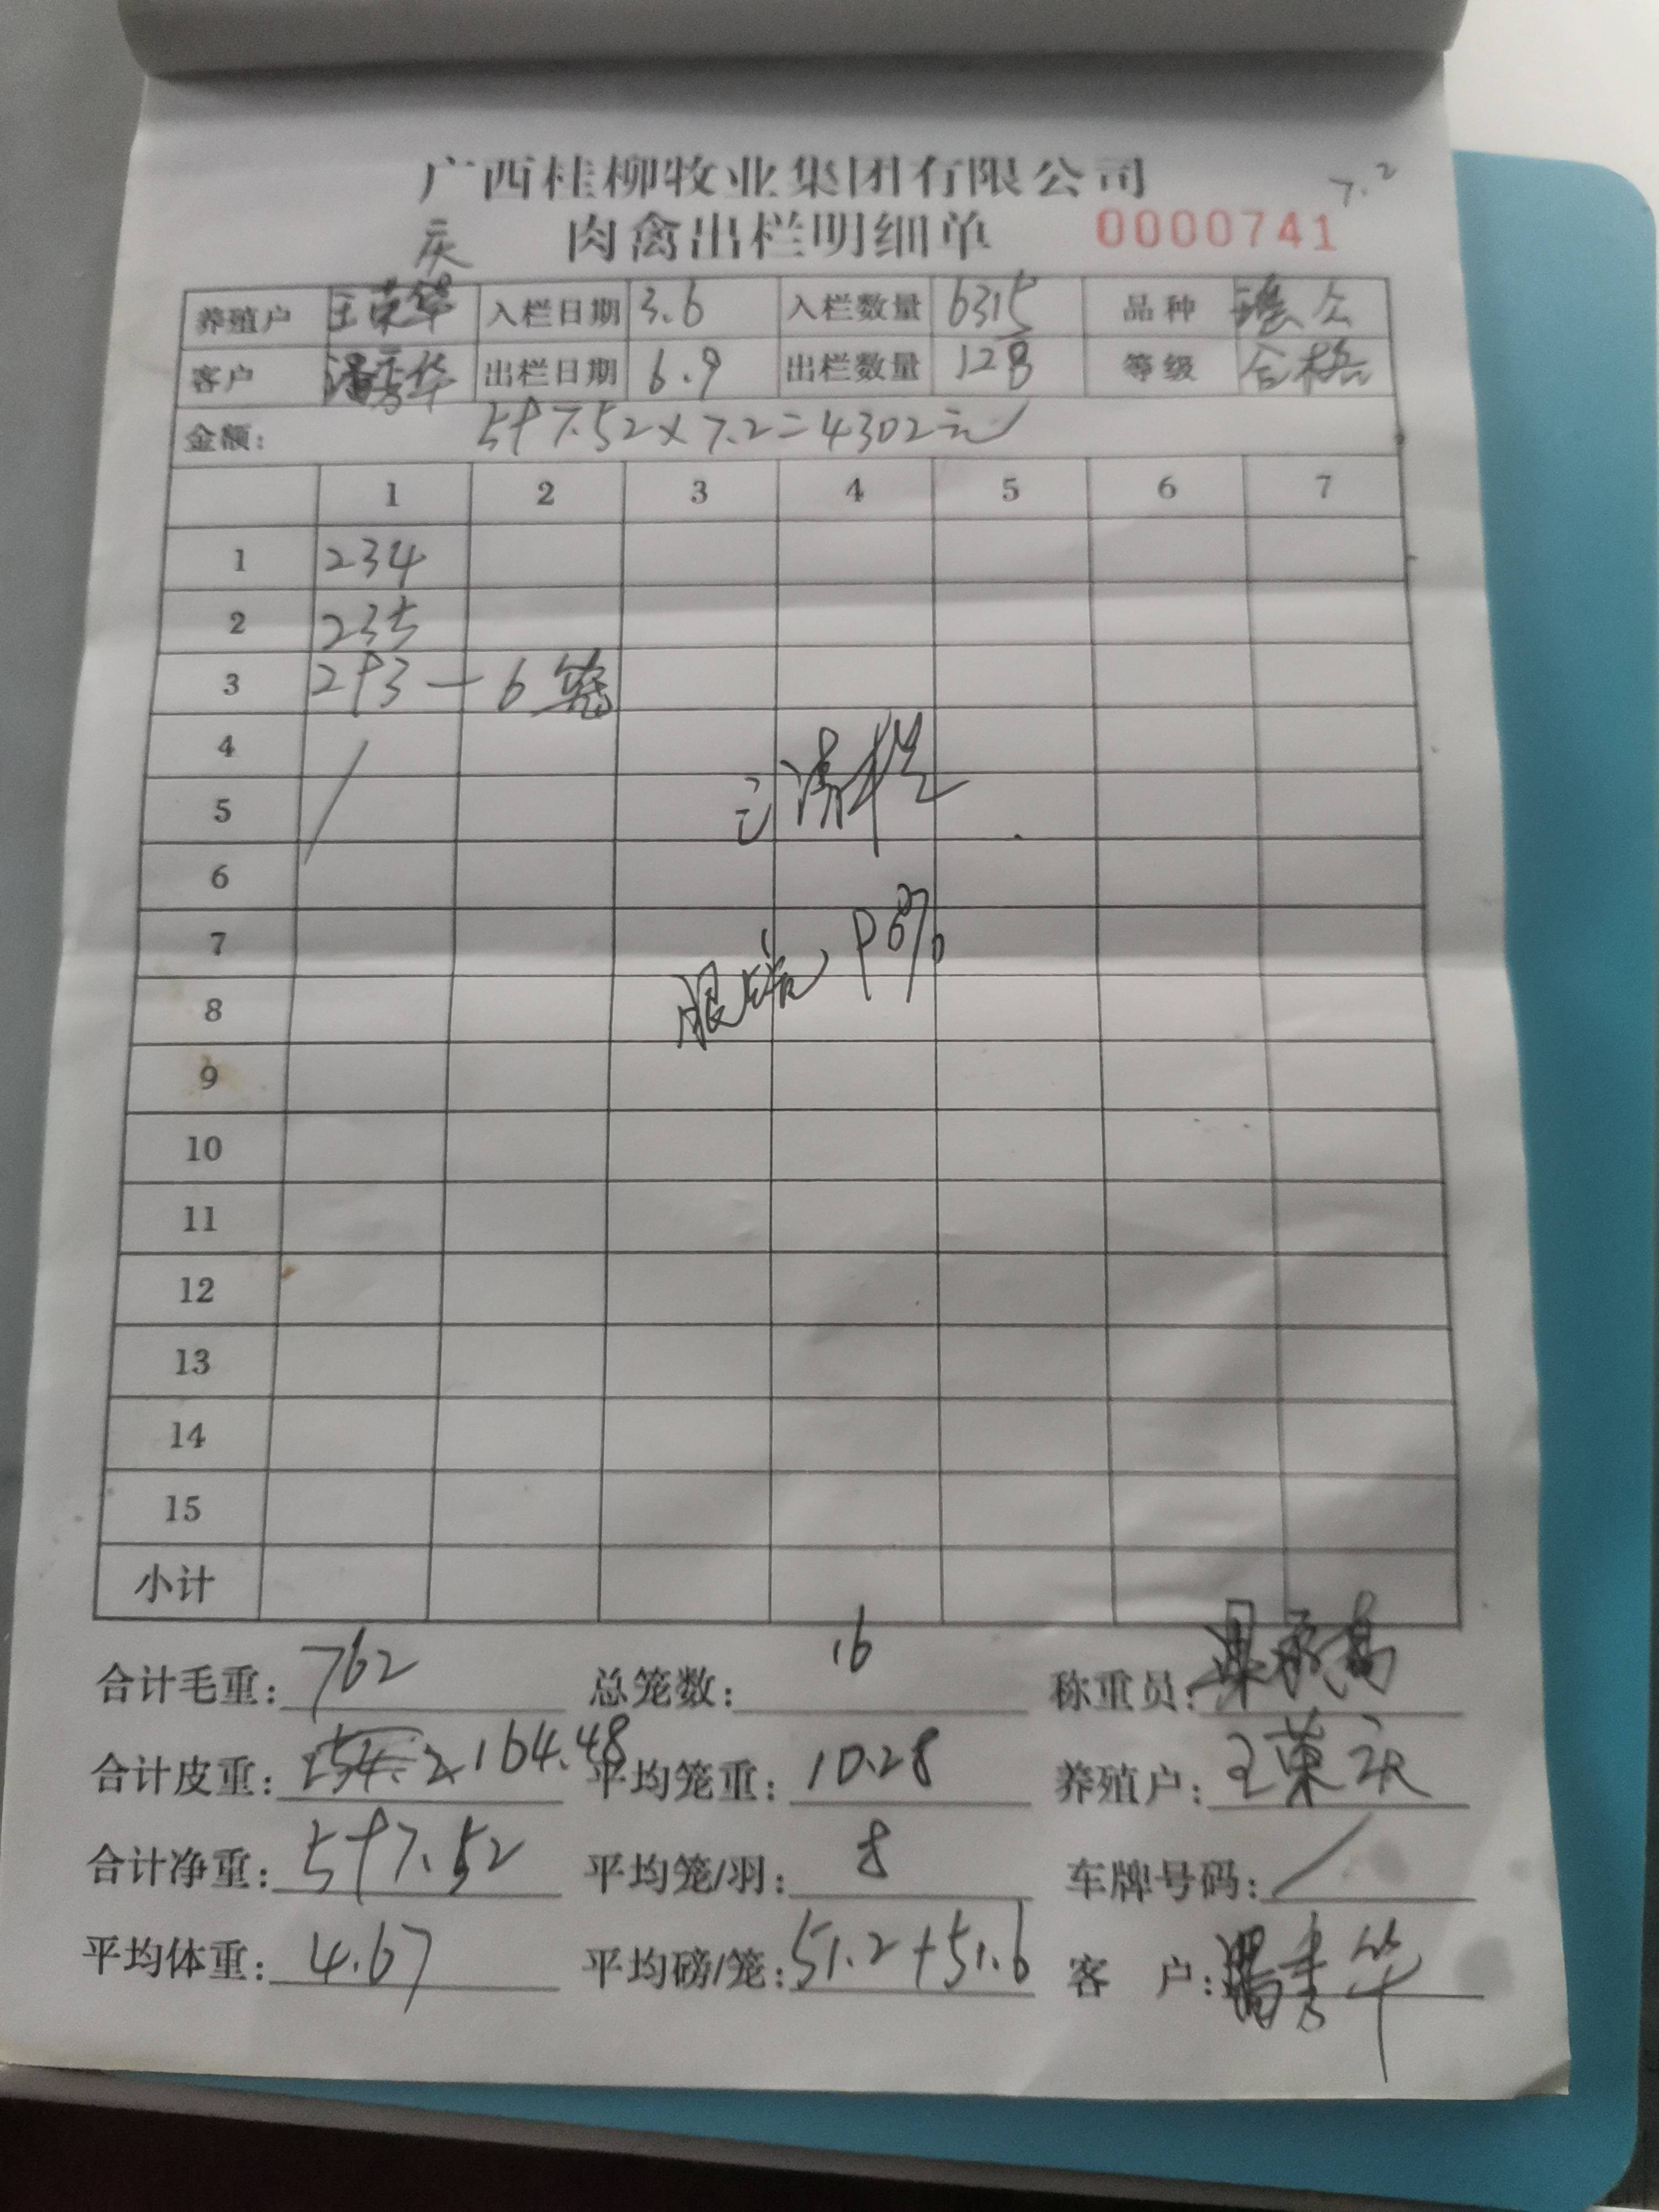 广西桂柳牧业集团有限公司
7.2
肉禽出栏明细单 0000741
庆
养殖户 王荣华 入栏日期 3.6 入栏数量 6315 品种
客户 秀华 出栏日期 6.9 出栏数量 128 等级 合格
金额: 597.52×7.2=4302元
1 2 3 4 5 6 7
1 234
2 235
3 293—6笼
4
5 已清栏
6
7
8
9
10
11
12
13
14
15
小计
合计毛重: 762 总笼数: 16 称重员:
合计皮重: 164.48 平均笼重: 10.28 养殖户: 王荣庆
合计净重: 597.52 平均笼/羽: 8 车牌号码: /
平均体重: 4.67 平均磅/笼: 51.2+51.6 客 户: 秀华